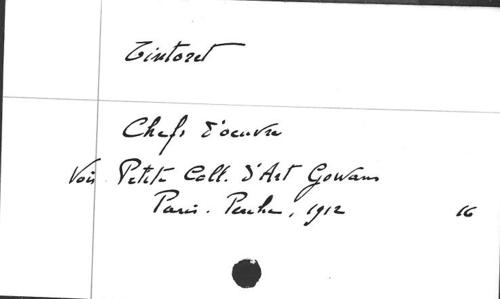 Tintoret
Chefs d'oeuvre
Voir Petite Coll. d'Art Gowans
Paris. Perche, 1912 16